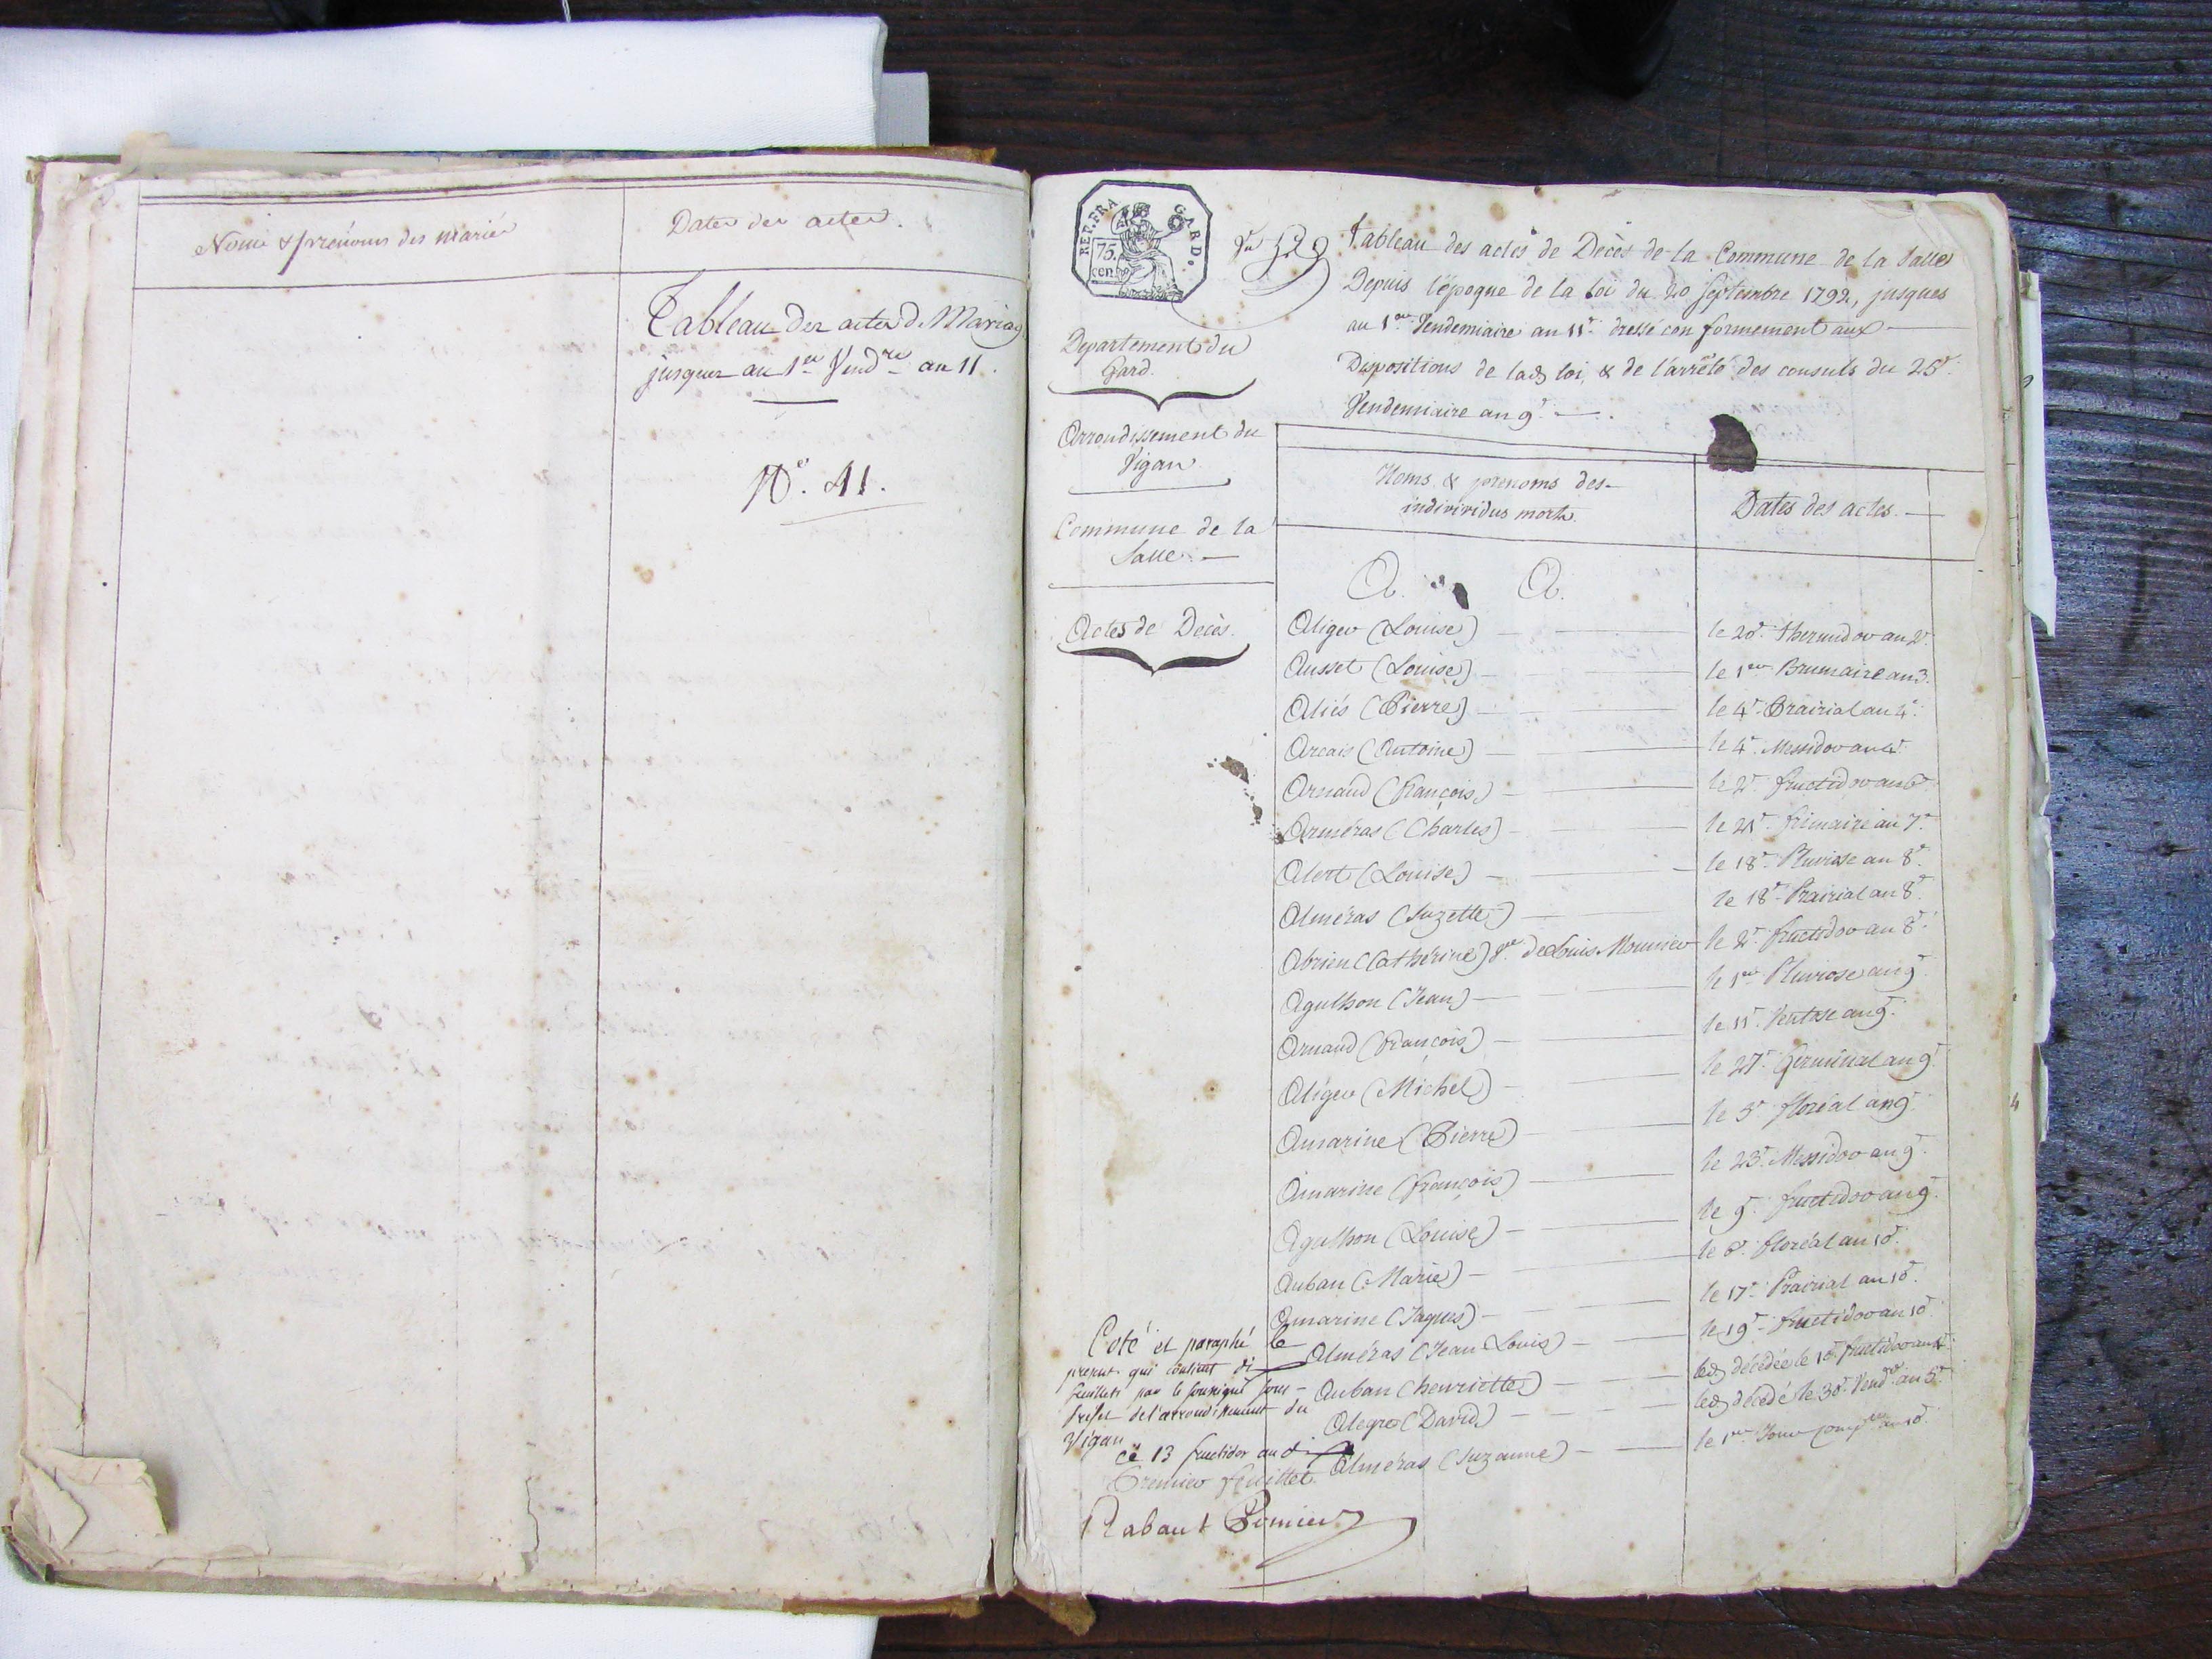 Noms & prénoms des mariés
Dates des actes.
Tableau des actes de Mariage
jusques au 1er Vendre an 11.
No. 41.
REP. FRA
GARD.
75.
cent.
Tableau des actes de Decès de la Commune de la Salle
Depuis l'époque de la loi du 20 Septembre 1792, jusques
au 1er Vendemiaire an 11e dressé conformement aux
Dispositions de lad. loi, & de l'arrêté des consuls du 25e
Vendemiaire an 9e
Departement du
Gard.
Arrondissement du
Vigan
Commune de la
Salle
Actes de Decès.
Noms & prenoms des
individus morts.
Dates des actes.
A. A.
Aliger (Louise) le 20e thermidor an 2e
Ausset (Louise) le 1er Brumaire an 3.
Aliés (Pierre) le 4e Prairial an 4e
Arcais (Antoine) le 4e Messidor an 4e
Arnaud (François) le 2e fructidor an 6e
Arméras (Charles) le 21e frimaire an 7e
Alert (Louise) le 18e Pluviose an 8e
Alméras (Suzette) le 18e Prairial an 8e
Abrien (Cathérine) vve de Louis Mounier le 2e fructidor an 8e
Agulhon (Jean) le 1er Pluviose an 9e
Arnaud (François) le 11e Ventose an 9e
Aliger (Michel) le 27e Germinal an 9e
Amarine (Pierre) le 5e floréal an 9e
Amarine (François) le 23e Messidor an 9e
Agulhon (Louise) le 9e fructidor an 9e
Auban (Marie) le 6e floréal an 10e
Amarine (Jaques) le 17e Prairial an 10e
Alméras (Jean Louis) le 19e fructidor an 10e
Auban (henriette) led. décédée le 10e fructidor an 4e
Alegre (David) led. décédé le 30e Vendre an 5e
Alméras (Suzanne) le 1er Jour compre an 10e
Coté et paraphé le
present qui contient di
feuillets par le soussigné sous-
Prefet de l'arrondissement du
Vigan
ce 13 fructidor an di
Premier feuillet
Rabaut Pomier